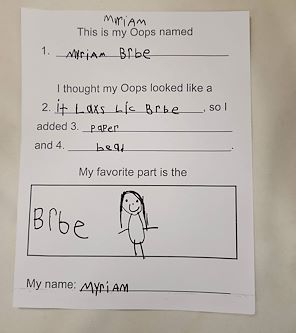 Myriam
This is my Oops named
1. Myriam Brbe
I thought my Oops looked like a
2. it Laxs Lic Brbe, so I
added 3. paper
and 4. bead.
My favorite part is the
Brbe
My name: Myriam